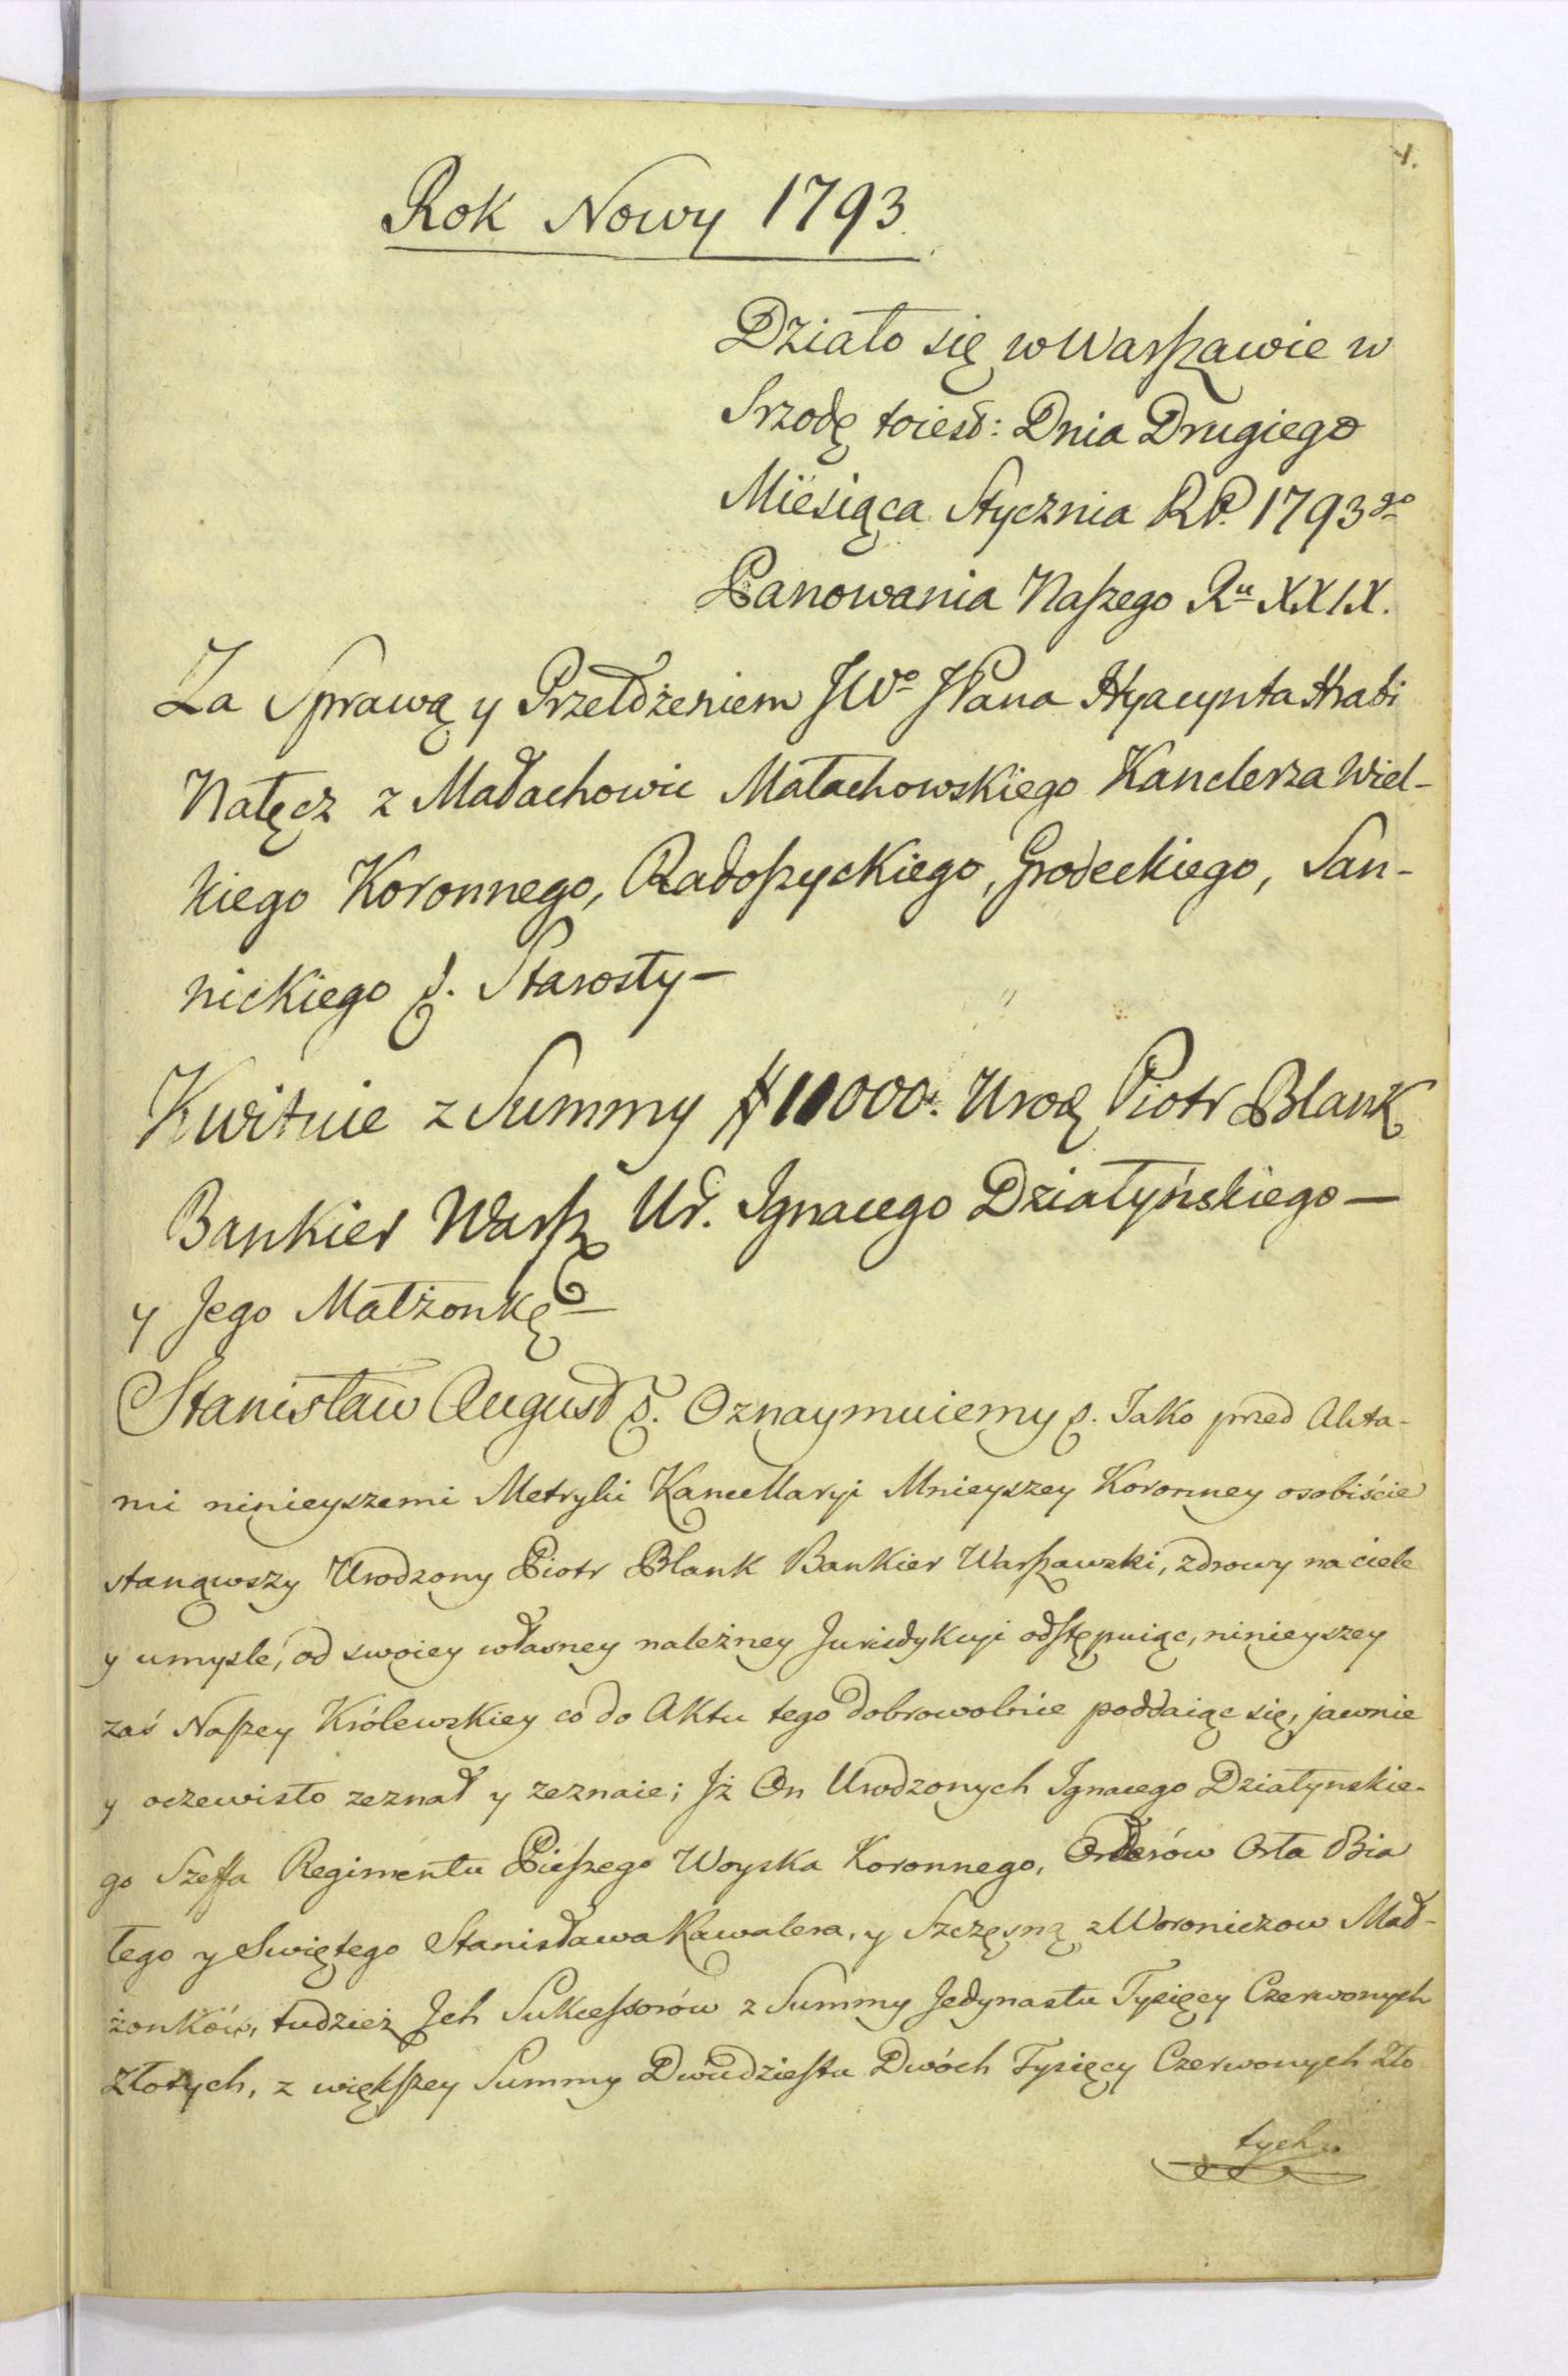 1.
Rok Nowy 1793.
Działo się w Warszawie w
Srzodę toiest: Dnia Drugiego
Miesiąca Stycznia RP. 1793go
Panowania Naszego Ru XXIX.
Za Sprawą y Przełożeniem JWo JPana Hyacynta Hrabi
Nałęcz z Małachowic Małachowskiego Kanclerza Wiel-
kiego Koronnego, Radoszyckiego, Grodeckiego, San-
nickiego &. Starosty —
Kwituie z Summy # 11000. Urod Piotr Blank
Bankier Warsz Ur. Ignacego Działyńskiego —
y Jego Małżonkę —
Stanisław August &. Oznaymuiemy &. Iako przed Akta-
mi ninieyszemi Metryki Kancellaryi Mnieyszey Koronney osobiście
stanąwszy Urodzony Piotr Blank Bankier Warszawski, zdrowy na ciele
y umysle, od swoiey własney należney Jurisdykcyi odstępuiąc, ninieyszey
zaś Naszey Królewskiey co do Aktu tego dobrowolnie poddaiąc się, jawnie
y oczewisto zeznał y zeznaie; Jż On Urodzonych Ignacego Działynskie-
go Szeffa Regimentu Pieszego Woyska Koronnego, Orderów Orła Bia
łego y Swiętego Stanisława Kawalera, y Szczęsną z Woroniczow Mał-
żonków, tudzież Jch Sukcessorów z Summy Jedynastu Tysięcy Czerwonych
Złotych, z większey Summy Dwudziestu Dwóch Tysięcy Czerwonych Zło
tych